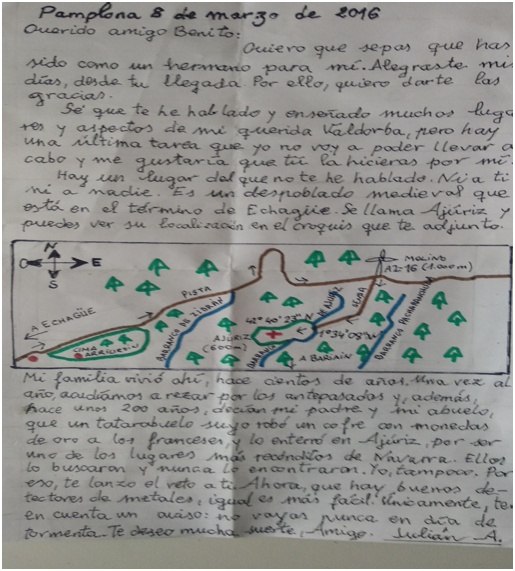 Pamplona 8 de marzo de 2016
Querido amigo Benito:
Quiero que sepas que has
sido como un hermano para mí. Alegraste mis
días, desde tu llegada. Por ello, quiero darte las
gracias.
Sé que te he hablado y enseñado muchos luga
res y aspectos de mi querida Valdorba, pero hay
una última tarea que yo no voy a poder llevar a
cabo y me gustaría que tú la hicieras por mí.
Hay un lugar del que no te he hablado. Ni a ti
ni a nadie. Es un despoblado medieval que
está en el término de Echagüe. Se llama Ajúriz y
puedes ver su localización en el croquis que te adjunto.
N
O E
S
MOLINO
AZ-16 (1.000m)
PISTA
SENDA
A ECHAGÜE
42° 40' 23" N
AJURIZ
(600m)
1° 34' 08"
CIMA
BARRANCO DE
BARRANCO
A BARIAIN
BARRANCO
Mi familia vivió ahí, hace cientos de años. Una vez al
año, acudíamos a rezar por los antepasados y, además,
hace unos 200 años, decían mi padre y mi abuelo,
que un tatarabuelo suyo robó un cofre con monedas
de oro a los franceses, y lo enterró en Ajúriz, por ser
uno de los lugares más recónditos de Navarra. Ellos
lo buscaron y nunca lo encontraron. Yo, tampoco. Por
eso, te lanzo el reto a ti. Ahora, que hay buenos de-
tectores de metales, igual es más fácil. Únicamente, ten
en cuenta un aviso: no vayas nunca en día de
tormenta. Te deseo mucha suerte, Amigo. Julián A.